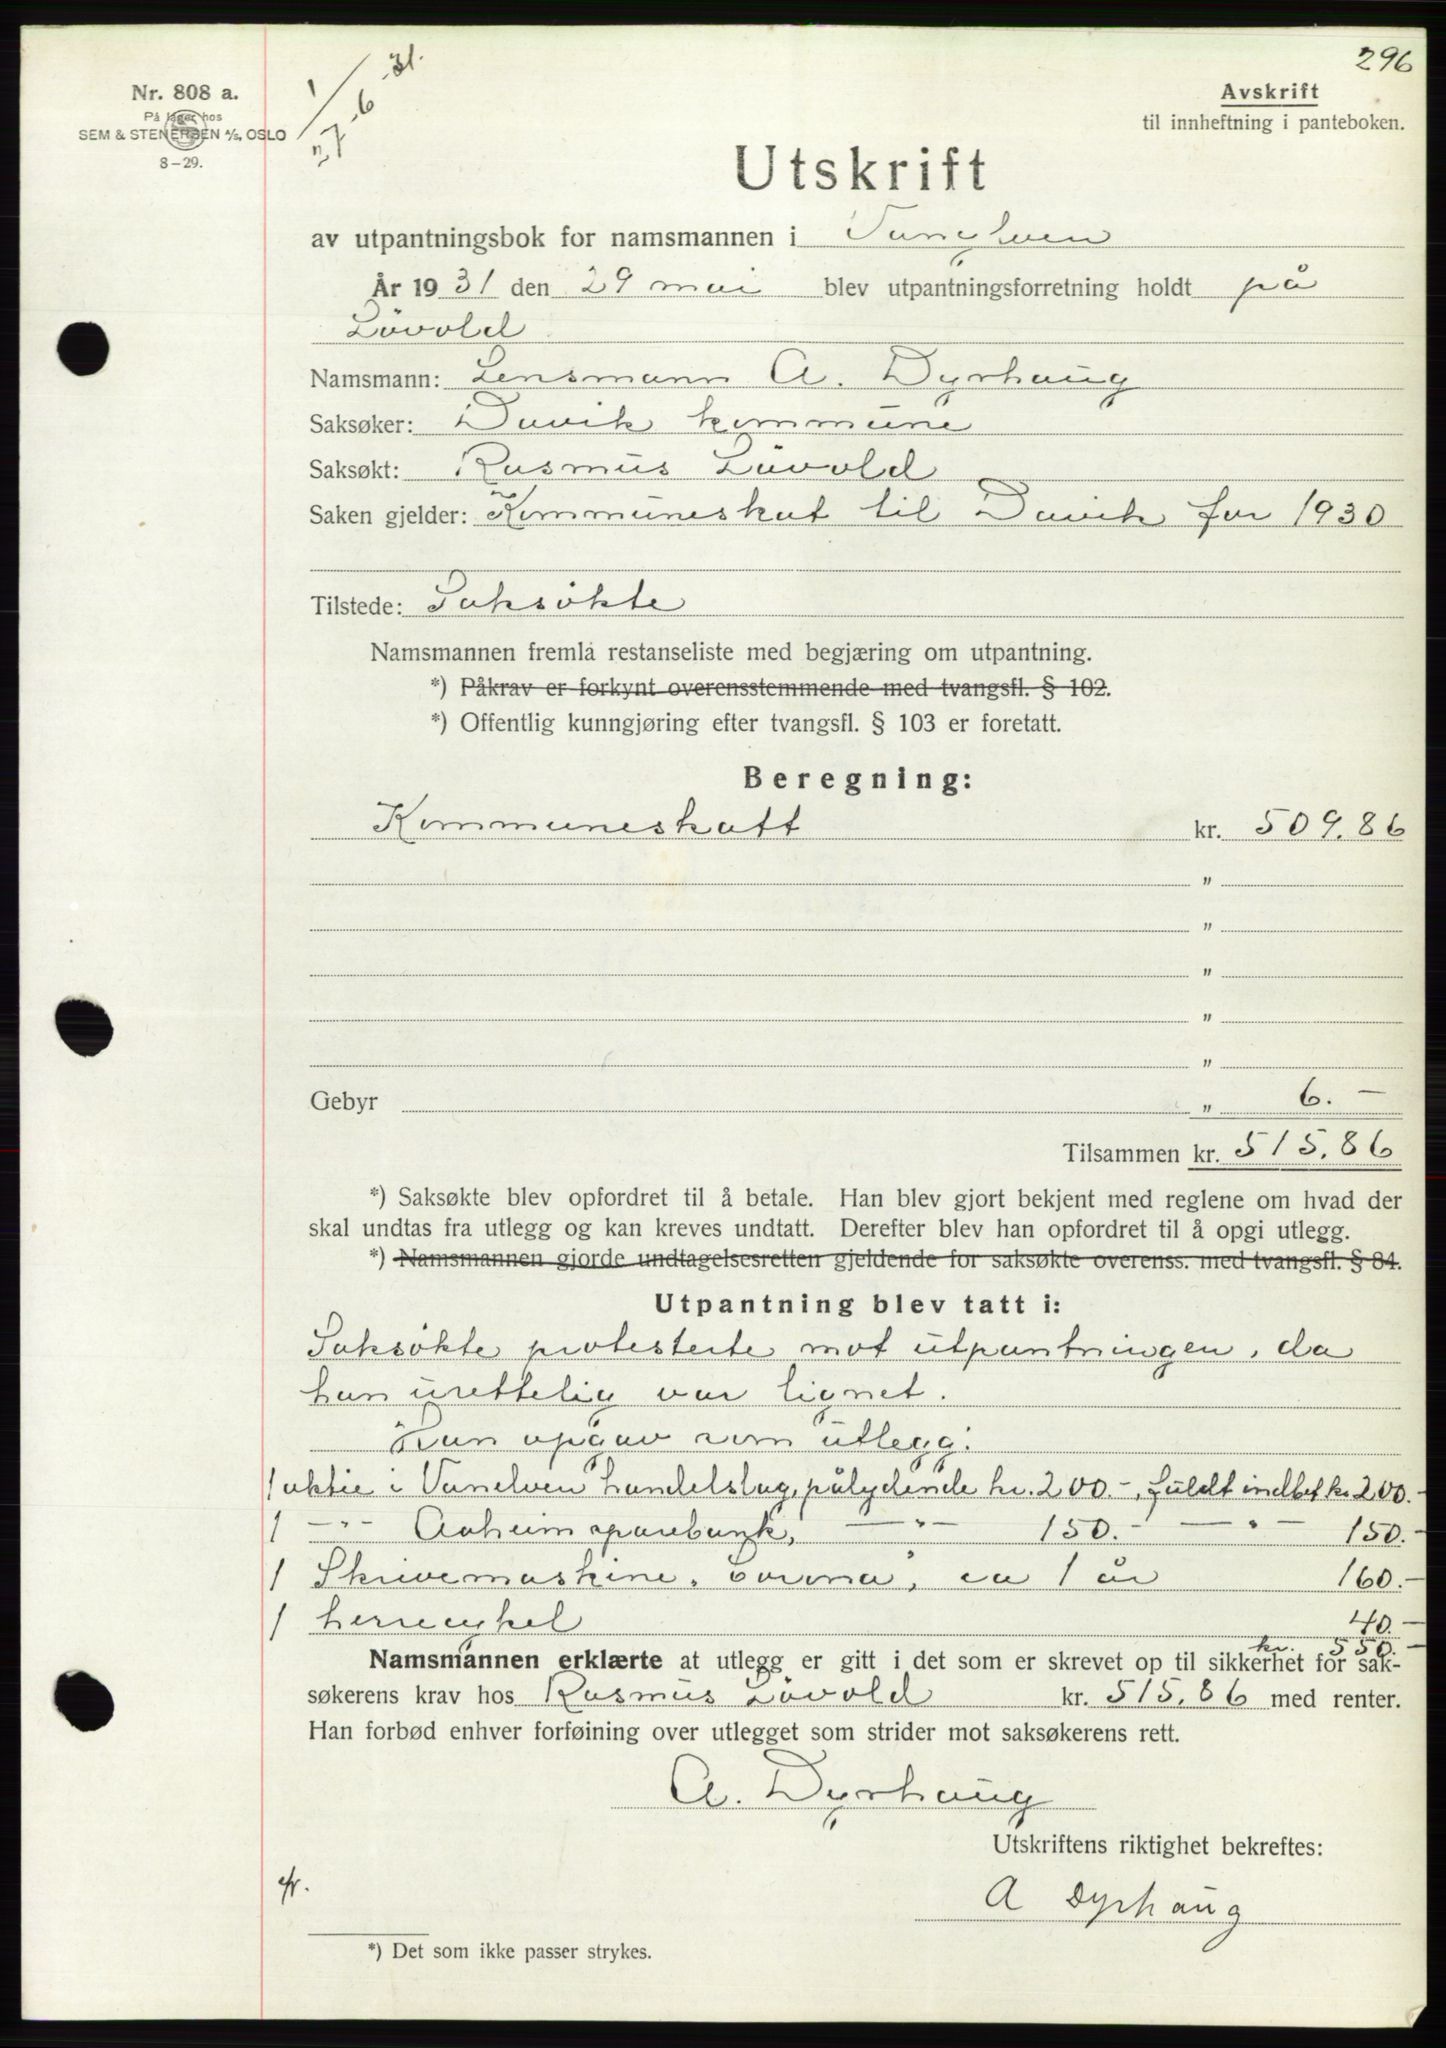 296
Nr. 808 a.
På lager hos
SEM & STENERSEN A/S, OSLO
8–29.
1/7-6-31.
Avskrift
til innheftning i panteboken.
Utskrift
av utpantningsbok for namsmannen i Vanelven
År 1931 den 29 mai blev utpantningsforretning holdt på
Lövold
Namsmann: Lensmann A. Dyrhaug
Saksøker: Davik kommune
Saksøkt: Rasmus Lövold
Saken gjelder: Kommuneskat til Davik for 1930
Tilstede: Saksökte
Namsmannen fremla restanseliste med begjæring om utpantning.
*) Påkrav er forkynt overensstemmende med tvangsfl. § 102.
*) Offentlig kunngjøring efter tvangsfl. § 103 er foretatt.
Beregning:
Kommuneskatt kr. 509.86
"
"
"
"
"
Gebyr " 6. —
Tilsammen kr. 515.86
*) Saksøkte blev opfordret til å betale. Han blev gjort bekjent med reglene om hvad der
skal undtas fra utlegg og kan kreves undtatt. Derefter blev han opfordret til å opgi utlegg.
*) Namsmannen gjorde undtagelsesretten gjeldende for saksøkte overenss. med tvangsfl. § 84.
Utpantning blev tatt i:
Saksökte protesterte mot utpantningen, da
han urettelig var lignet.
Han opgav som utlegg:
1 aktie i Vanelven handelslag, pålydende kr. 200.-, fuldt indbet kr. 200.-
1 —"— Aaheim sparebank, —"— 150.- —"— 150.-
1 Skrivemaskine, Corona, ca 1 år 160.-
1 herrecykel 40.-
kr. 550.-
Namsmannen erklærte at utlegg er gitt i det som er skrevet op til sikkerhet for sak-
søkerens krav hos Rasmus Lövold kr. 515.86 med renter.
Han forbød enhver forføining over utlegget som strider mot saksøkerens rett.
A. Dyrhaug
Utskriftens riktighet bekreftes:
A Dyrhaug
*) Det som ikke passer strykes.